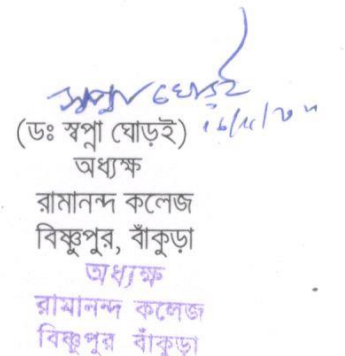 স্বপ্না ঘোড়ই
(ডঃ স্বপ্না ঘোড়ই)
অধ্যক্ষ
রামানন্দ কলেজ
বিষ্ণুপুর, বাঁকুড়া
অধ্যক্ষ
রামানন্দ কলেজ
বিষ্ণুপুর বাঁকুড়া